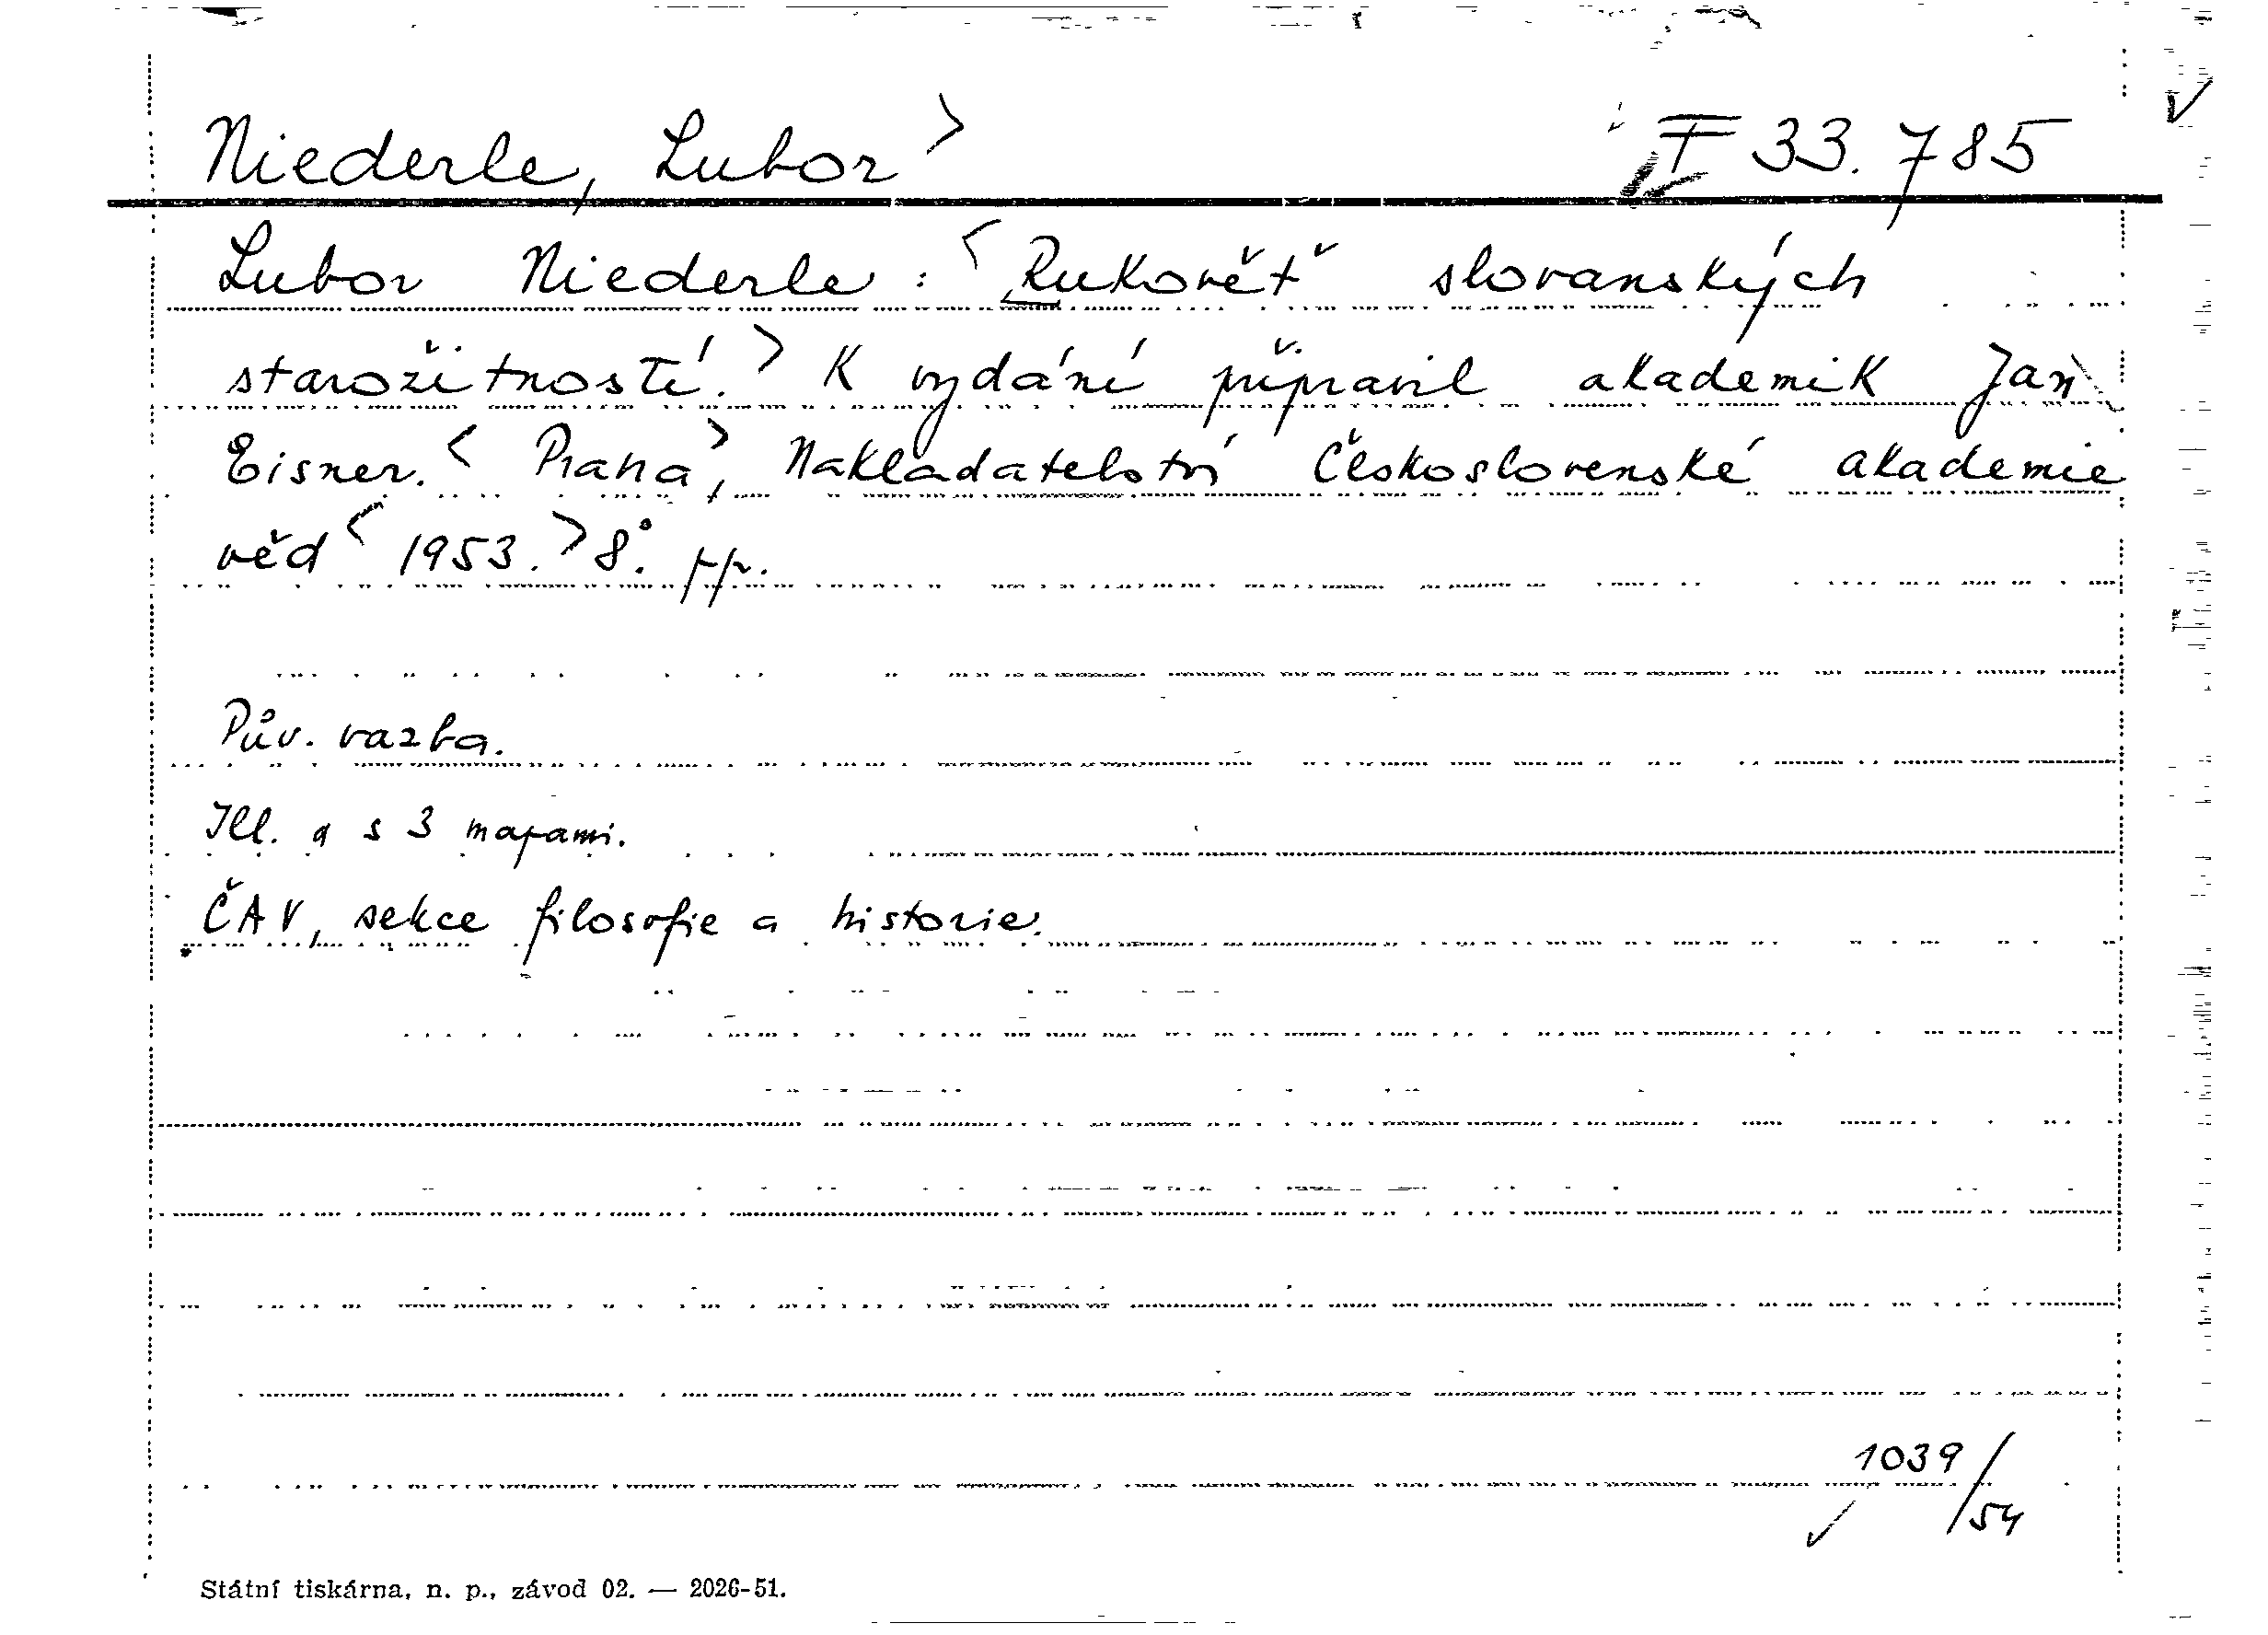 Niederle, Lubor> F 33.785
Lubor Niederle: <Rukověť slovanských
starožitností.> K vydání připravil akademik Jan
Eisner. <Praha>, Nakladatelství Československé akademie
věd <1953.> 8°. pp.
Pův. vazba.
Ill. a s 3 mapami.
ČAV, sekce filosofie a historie.
1039/54
Státní tiskárna, n. p., závod 02. — 2026-51.